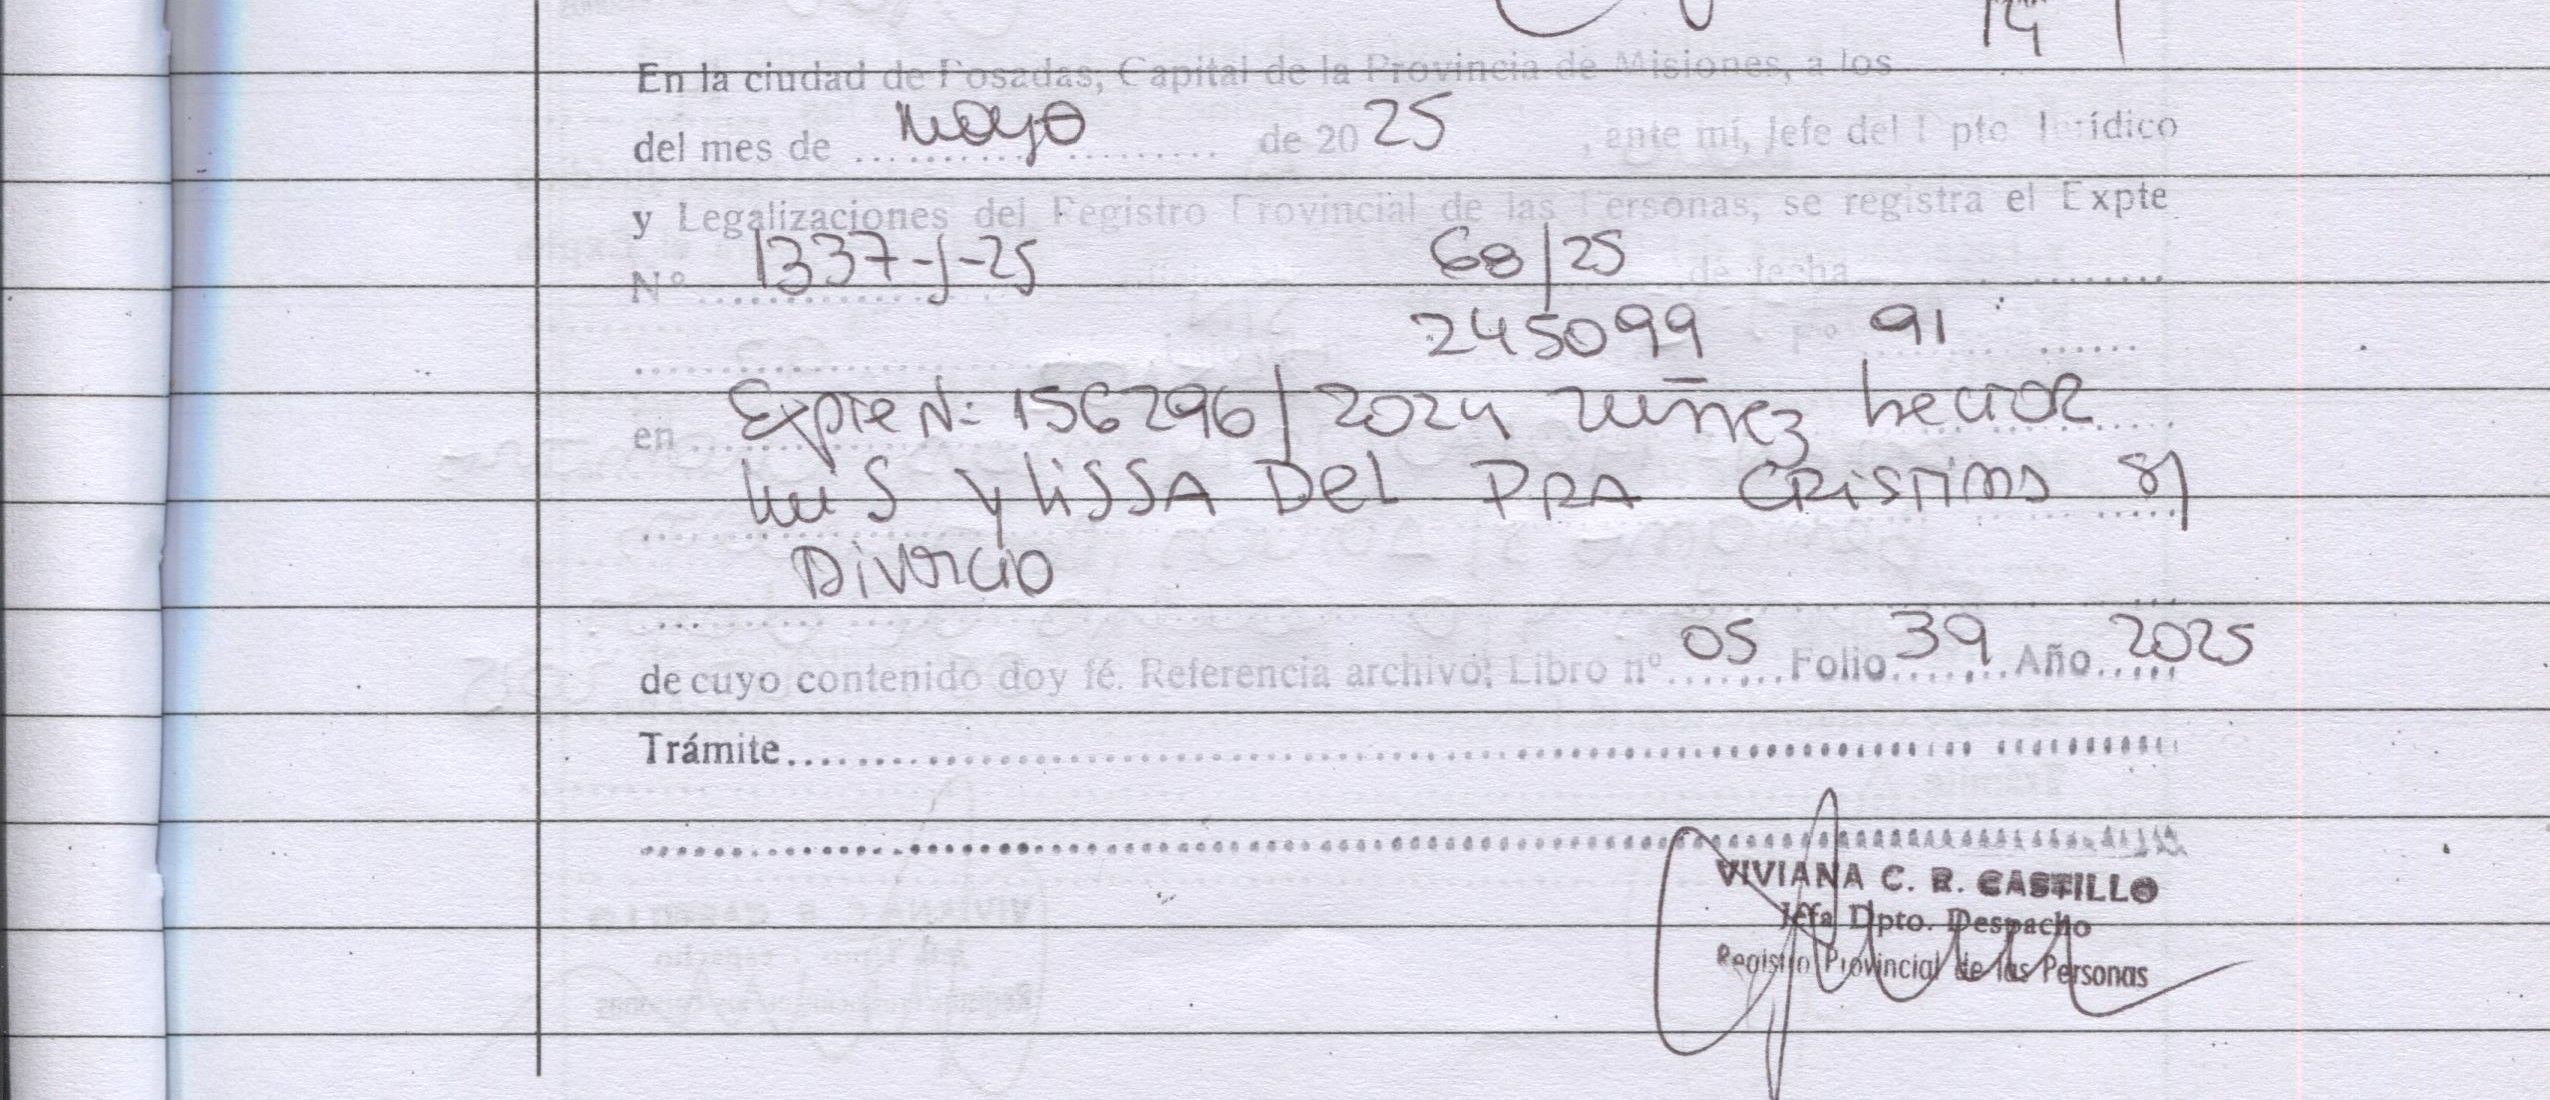 14
En la ciudad de Posadas, Capital de la Provincia de Misiones, a los
del mes de mayo de 20 25, ante mí, Jefe del Dpto Jurídico
y Legalizaciones del Registro Provincial de las Personas, se registra el Expte
Nº 1337-J-25 68/25 de fecha
245099 91
en Expte Nº: 156296/2024 Nuñez hector
luis y lissa Del PRA CRistina s/
Divorcio
de cuyo contenido doy fé. Referencia archivo; Libro nº 05 Folio 39 Año 2025
Trámite
VIVIANA C. R. CASTILLO
Jefa Dpto. Despacho
Registro Provincial de las Personas